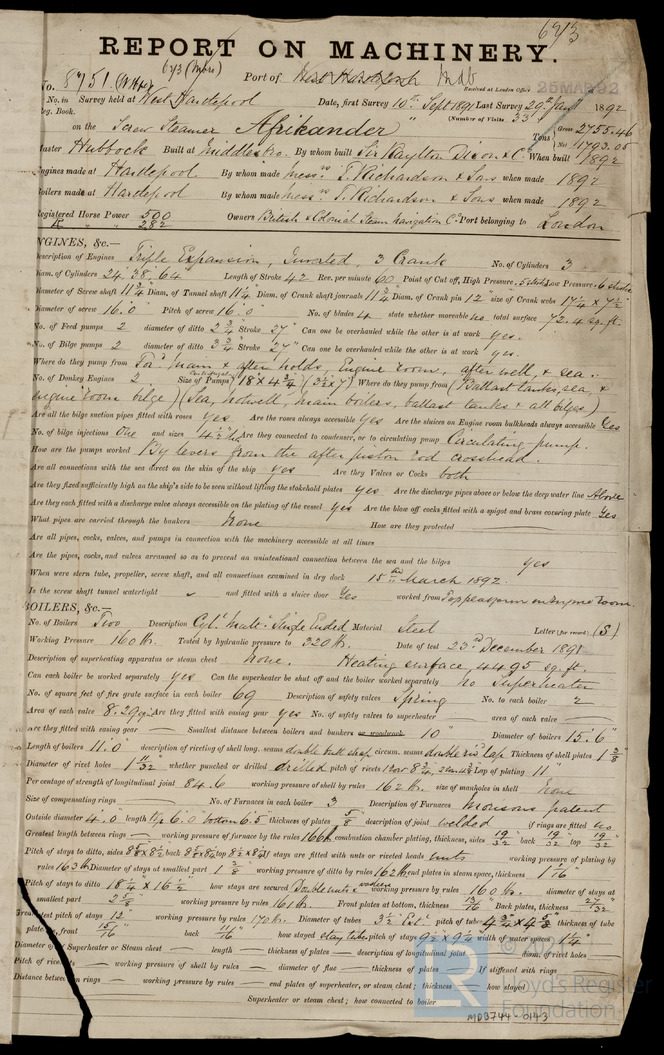 673
REPORT ON MACHINERY.
No. 8751 (W Hpl) 673 (Mbro) Port of West Hartlepool Mdb
Received at London Office 25 MAR 92
No. in Survey held at West Hartlepool Date, first Survey 10th Sept 1891 Last Survey 29th Jany 1892
Reg. Book. (Number of Visits 33)
on the Screw Steamer Afrikander Tons Gross 2755.46
Net 1793.05
Master Hubbock Built at Middlesbro. By whom built Sir Raylton Dixon & Co. When built 1892
Engines made at Hartlepool By whom made Messrs T. Richardson & Sons when made 1892
Boilers made at Hartlepool By whom made Messrs T. Richardson & Sons when made 1892
Registered Horse Power 500 Owners British & Colonial Steam Navigation Co. Port belonging to London
282
ENGINES, &c.—
Description of Engines Triple Expansion, Inverted, 3 Crank No. of Cylinders 3
Diam. of Cylinders 24. 38. 64 Length of Stroke 42 Rev. per minute 60 Point of Cut off, High Pressure, Low Pressure,
Diameter of Screw shaft 11 3/4 Diam. of Tunnel shaft 11 1/4 Diam. of Crank shaft journals 11 3/4 Diam. of Crank pin 12 size of Crank webs 17 1/4 x 7 1/2
Diameter of screw 16.0 Pitch of screw 16.0 No. of blades 4 state whether moveable no total surface 72.4 sq. ft.
No. of Feed pumps 2 diameter of ditto 2 3/4 Stroke 27" Can one be overhauled while the other is at work yes.
No. of Bilge pumps 2 diameter of ditto 3 3/4 Stroke 27" Can one be overhauled while the other is at work yes.
Where do they pump from For: main & after holds, Engine room, after well, & sea.
No. of Donkey Engines 2 Size of Pumps Centrifugal (18 x 4 3/4) (3 1/2 x 7) Where do they pump from (Ballast tanks, sea, &
engine room bilge) (Sea, hotwell, main boilers, ballast tanks & all bilges)
Are all the bilge suction pipes fitted with roses yes Are the roses always accessible yes Are the sluices on Engine room bulkheads always accessible Yes
No. of bilge injections One and sizes 4 1/2 Are they connected to condenser, or to circulating pump Circulating pump.
How are the pumps worked By levers from the after piston rod crosshead.
Are all connections with the sea direct on the skin of the ship yes Are they Valves or Cocks both
Are they fixed sufficiently high on the ship's side to be seen without lifting the stokehold plates yes Are the discharge pipes above or below the deep water line Above
Are they each fitted with a discharge valve always accessible on the plating of the vessel yes Are the blow off cocks fitted with a spigot and brass covering plate Yes
What pipes are carried through the bunkers None How are they protected
Are all pipes, cocks, valves, and pumps in connection with the machinery accessible at all times
Are the pipes, cocks, and valves arranged so as to prevent an unintentional connection between the sea and the bilges yes
When were stern tube, propeller, screw shaft, and all connections examined in dry dock 15th March 1892.
Is the screw shaft tunnel watertight and fitted with a sluice door Yes worked from Top platform in Engine Room.
BOILERS, &c.—
No. of Boilers Two Description Cyl: Mult: Single Ended Material Steel Letter (for record) (S)
Working Pressure 160 lb. Tested by hydraulic pressure to 320 lb. Date of test 23rd December 1891
Description of superheating apparatus or steam chest None. Heating surface, 4495 sq. ft.
Can each boiler be worked separately yes Can the superheater be shut off and the boiler worked separately no Superheater
No. of square feet of fire grate surface in each boiler 69 Description of safety valves Spring No. to each boiler 2
Area of each valve 8.29 Are they fitted with easing gear yes No. of safety valves to superheater area of each valve
are they fitted with easing gear Smallest distance between boilers and bunkers or woodwork 10" Diameter of boilers 15'.6"
Length of boilers 11'.0" description of riveting of shell long. seams double butt strap circum. seams double riv. lap Thickness of shell plates 1 3/8"
Diameter of rivet holes 1 11/32" whether punched or drilled drilled pitch of rivets Lap of plating 11"
Per centage of strength of longitudinal joint 84.6 working pressure of shell by rules 162 lb. size of manholes in shell None
Size of compensating rings No. of Furnaces in each boiler 3 Description of Furnaces Morisons patent
Outside diameter 4'.0" length bottom plates 5/8 description of joint welded if rings are fitted no
Greatest length between rings working pressure of furnace by the rules 166 lb combustion chamber plating, thickness, sides 19/32 back 19/32 top 19/32
Pitch of stays to ditto, sides 8 5/8 x 8 1/2 back top 8 1/2 x 8 1/2 If stays are fitted with nuts or riveted heads nuts working pressure of plating by
rules 163 lb Diameter of stays at smallest part 1 3/8 working pressure of ditto by rules 162 lb end plates in steam space, thickness 1 1/16"
Pitch of stays to ditto 18 1/4 x 16 1/2 how stays are secured Double nuts & washers working pressure by rules 160 lb. diameter of stays at
smallest part 2 5/8 working pressure by rules 161 lb. Front plates at bottom, thickness 13/16 Back plates, thickness 27/32
Greatest pitch of stays 12" working pressure by rules 170 lb. Diameter of tubes 3 1/2" Ext. pitch of tubes 4 3/4 x 4 5/8 thickness of tube
plates, front 15/16 back 11/16 how stayed stay tubes pitch of stays 9 1/2 x 9 1/4 width of water spaces 1 1/4"
Diameter of Superheater or Steam chest length thickness of plates description of longitudinal joint diam. of rivet holes
Pitch of rivets working pressure of shell by rules diameter of flue thickness of plates If stiffened with rings
Distance between rings working pressure by rules end plates of superheater, or steam chest; thickness how stayed
Superheater or steam chest; how connected to boiler
© 2021
Lloyd's Register
Foundation
MDB744-0143